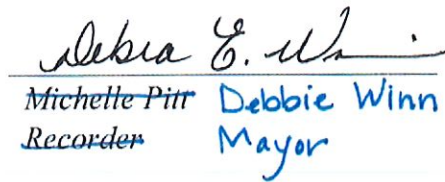 Debra E. Winn
Michelle Pitt Debbie Winn
Recorder Mayor